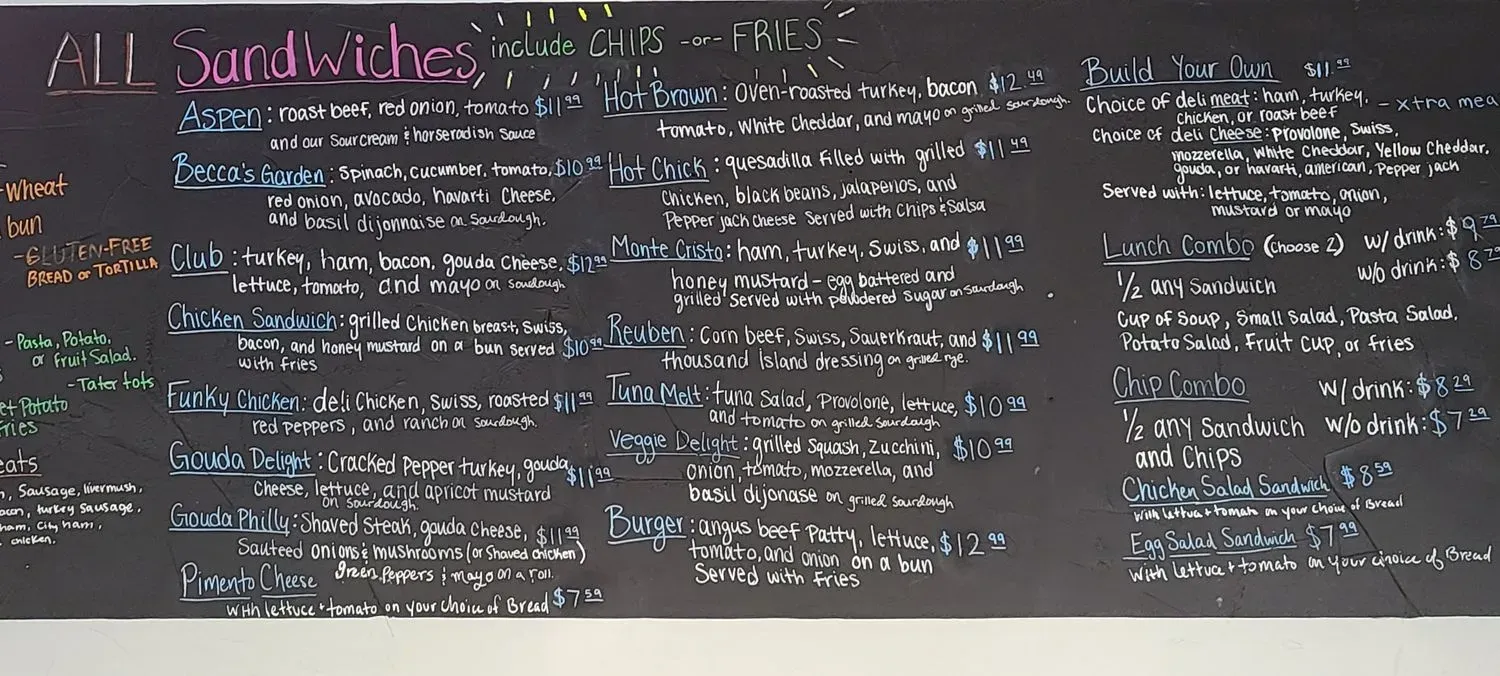 ALL Sandwiches include CHIPS -or- FRIES
- Wheat
bun
- GLUTEN-FREE
BREAD or TORTILLA
- Pasta, Potato,
or Fruit Salad.
- Tater tots
et Potato
Fries
eats
, Sausage, livermush,
acon, turkey Sausage,
ham, City ham,
chicken.
Aspen: roast beef, red onion, tomato $11.99
and our Sour Cream & horseradish Sauce
Becca's Garden: Spinach, cucumber, tomato, $10.99
red onion, avocado, havarti Cheese,
and basil dijonnaise on Sourdough.
Club: turkey, ham, bacon, gouda Cheese, $12.99
lettuce, tomato, and mayo on Sourdough
Chicken Sandwich: grilled Chicken breast, Swiss,
bacon, and honey mustard on a bun served $10.99
with fries
Funky Chicken: deli Chicken, Swiss, roasted $11.99
red peppers, and ranch on Sourdough.
Gouda Delight: Cracked Pepper turkey, gouda $11.99
Cheese, lettuce, and apricot mustard
on Sourdough.
Gouda Philly: Shaved Steak, gouda Cheese, $11.99
Sauteed onions & mushrooms (or Shaved chicken)
green Peppers & mayo on a roll.
Pimento Cheese
with lettuce + tomato on your choice of Bread $7.59
Hot Brown: Oven-roasted turkey, bacon $12.49
tomato, White Cheddar, and mayo on grilled Sourdough.
Hot Chick: quesadilla filled with grilled $11.49
Chicken, black beans, jalapenos, and
Pepper jack cheese Served with Chips & Salsa
Monte Cristo: ham, turkey, Swiss, and $11.99
honey mustard - egg battered and
grilled Served with powdered Sugar on Sourdough
Reuben: Corn beef, Swiss, Sauerkraut, and $11.99
thousand island dressing on grilled rye.
Tuna Melt: tuna Salad, Provolone, lettuce, $10.99
and tomato on grilled Sourdough
Veggie Delight: grilled Squash, Zucchini, $10.99
onion, tomato, mozzerella, and
basil dijonase on grilled Sourdough
Burger: angus beef Patty, lettuce, $12.99
tomato, and onion on a bun
Served with Fries
Build Your Own $11.99
Choice of deli meat: ham, turkey, - xtra mea
chicken, or roast beef
Choice of deli Cheese: Provolone, Swiss,
mozzerella, White Cheddar, Yellow Cheddar,
gouda, or havarti, american, Pepper jack
Served with: lettuce, tomato, onion,
mustard or mayo
Lunch Combo (Choose 2) w/ drink: $9.79
w/o drink: $8.79
1/2 any Sandwich
Cup of Soup, Small Salad, Pasta Salad,
Potato Salad, Fruit Cup, or fries
Chip Combo w/ drink: $8.29
1/2 any Sandwich w/o drink: $7.29
and Chips
Chicken Salad Sandwich $8.59
With lettuce + tomato on your choice of Bread
Egg Salad Sandwich $7.99
With lettuce + tomato on your choice of Bread